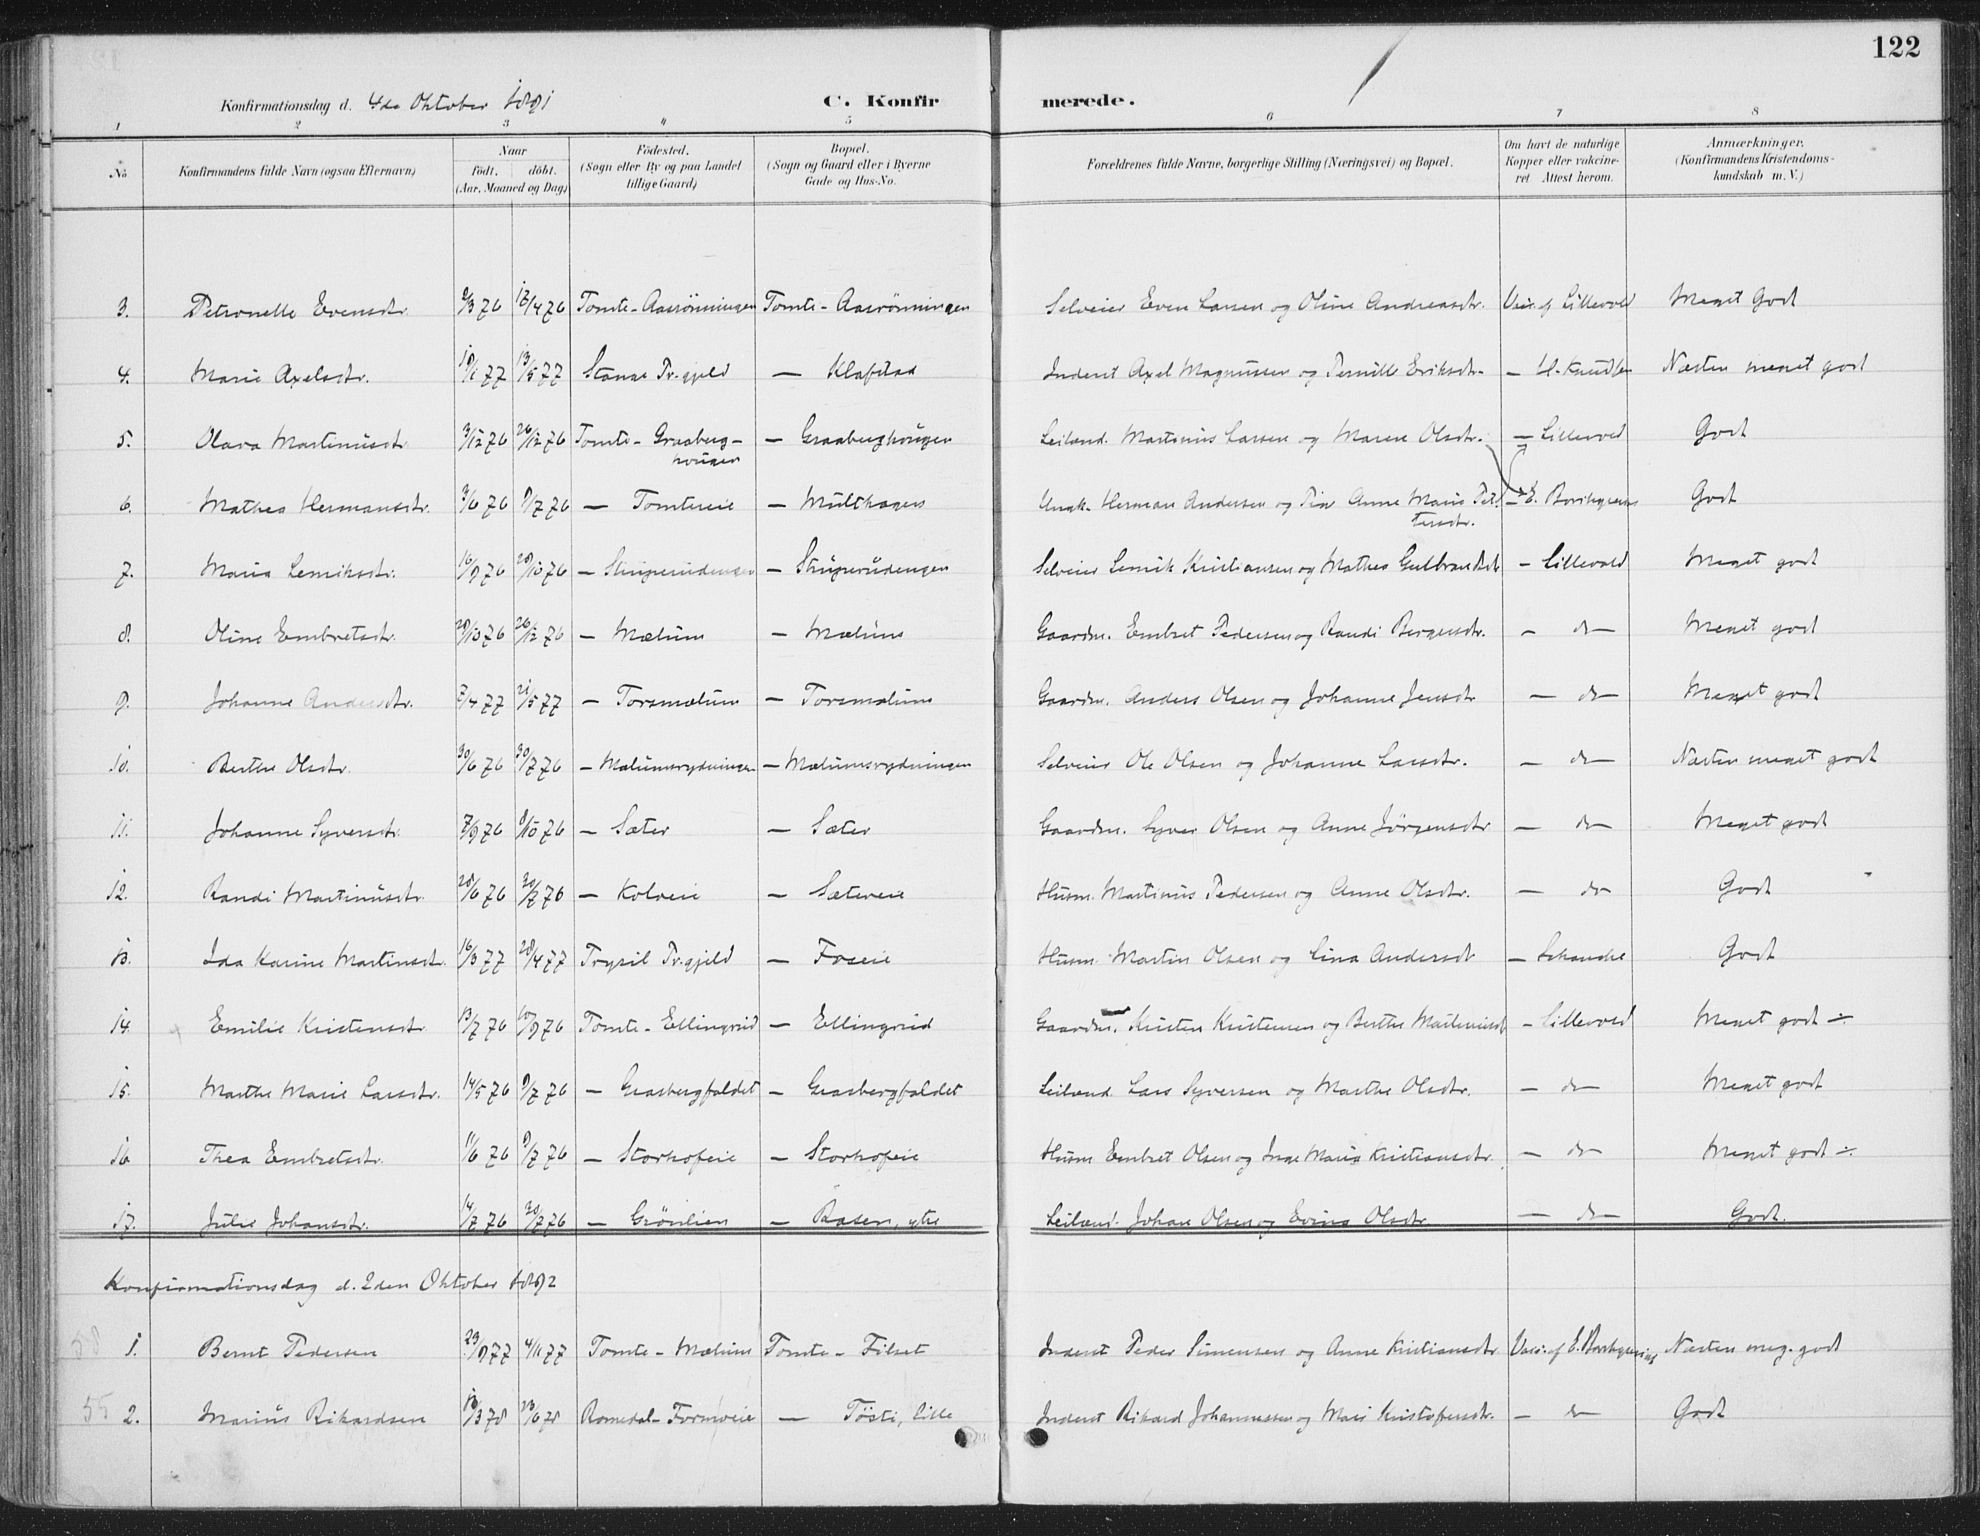 122
Konfirmationsdag d. 4de Oktober 1891 C. Konfirmerede.
1 2 3 4 5 6 7 8
No. Konfirmandens fulde Navn (ogsaa Efternavn) Naar födt. döbt. (Aar, Maaned og Dag) Födested. (Sogn eller By og paa Landet tillige Gaard) Bopæl. (Sogn og Gaard eller i Byerne Gade og Hus-No. Forældrenes fulde Navne, borgerlige Stilling (Næringsvei) og Bopæl. Om havt de naturlige Kopper eller vakcineret Attest herom. Anmærkninger. (Konfirmandens Kristendomskundskab m. V.)
3. Petronelle Evensdtr. 2/3 76 17/4 76 Tomte-Aasrönningen Tomte-Aasrönningen Selveier Even Larsen og Oline Andreasdtr. Vac. af Lillevold Meget Godt
4. Marie Axelsdtr. 10/1 77 13/5 77 Stange Pr.gjeld — Klafstad Inderst Axel Magnussen og Pernille Eriksdtr. — H. Knudsen Næsten meget godt
5. Olava Martinusdtr. 3/12 76 26/12 76 Tomte-Graaberghougen — Graaberghougen Leilænd. Martinus Larsen og Maren Olsdtr. — Lillevold Godt
6. Mathea Hermansdtr. 3/6 76 9/7 76 — Tomteeie — Multhagen Ungk. Herman Andersen og Pige Anne Marie Pettersdtr. — E. Borchgrevink Godt
7. Maria Lemiksdtr. 16/9 76 28/10 76 — Struperudengen — Struperudengen Selveier Lemik Kristiansen og Mathea Gulbrandsdt — Lillevold Meget godt
8. Oline Embretsdtr. 28/10 76 26/12 76 — Mælum — Mælum Gaardm. Embret Pedersen og Randi Børgersdtr. — do — Meget godt
9. Johanne Andersdtr. 7/4 77 21/5 77 — Torsmælum — Torsmælum Gaardm. Anders Olsen og Johanne Jensdtr — do — Meget godt
10. Berthe Olsdtr. 30/6 76 30/7 76 — Mælumsrydningen — Mælumsrydningen Selveier Ole Olsen og Johanne Larsdtr. — do — Næsten meget godt
11. Johanne Syversdtr. 7/9 76 8/10 76 — Sæter — Sæter Gaardm. Syver Olsen og Anne Jörgensdtr — do — Meget godt
12. Randi Martinusdtr. 28/6 76 30/7 76 — Kolveie — Sætereie Husm. Martinus Pedersen og Anne Olsdtr. — do Godt
13. Ida Karine Martinsdtr. 16/3 77 28/4 77 Trysil Pr.gjeld — Foseie Husm. Martin Olsen og Lina Andersdt — Schanche Godt
14. Emilie Kristensdtr 13/7 76 10/9 76 Tomte-Ellingrud — Ellingrud Gaardm. Kristen Kristensen og Berthe Martinusdt — Lillevold Meget godt ÷
15. Marthe Marie Larsdtr. 14/5 76 9/7 76 — Graabergfaldet — Graabergfaldet Leilænd. Lars Syversen og Marthe Olsdtr. — do — Meget godt
16 Thea Embretsdtr. 11/6 76 9/7 76 — Storhofeie — Storhofeie Husm Embret Olsen og Inge Maria Kristiansdtr. — do — Meget godt ÷
17. Julie Johansdtr. 14/7 76 30/7 76 — Grönlien — Basen, ytre Leilænd. Johan Olsen og Evine Olsdtr. — do — Godt.
Konfirmationsdag d. 2den Oktober 1892
58 1. Bernt Pedersen 23/9 77 4/11 77 Tomte-Mælum Tomte-Filset Inderst Peder Simensen og Anne Kristiansdtr. Vacc. af E. Borchgrevink Næsten meg. godt
55 2. Marius Rikardsen 13/3 78 23/6 78 Romedal- — Tösti, lille Inderst Rikard Johannessen og Mari Kristofersdtr. — do — Godt